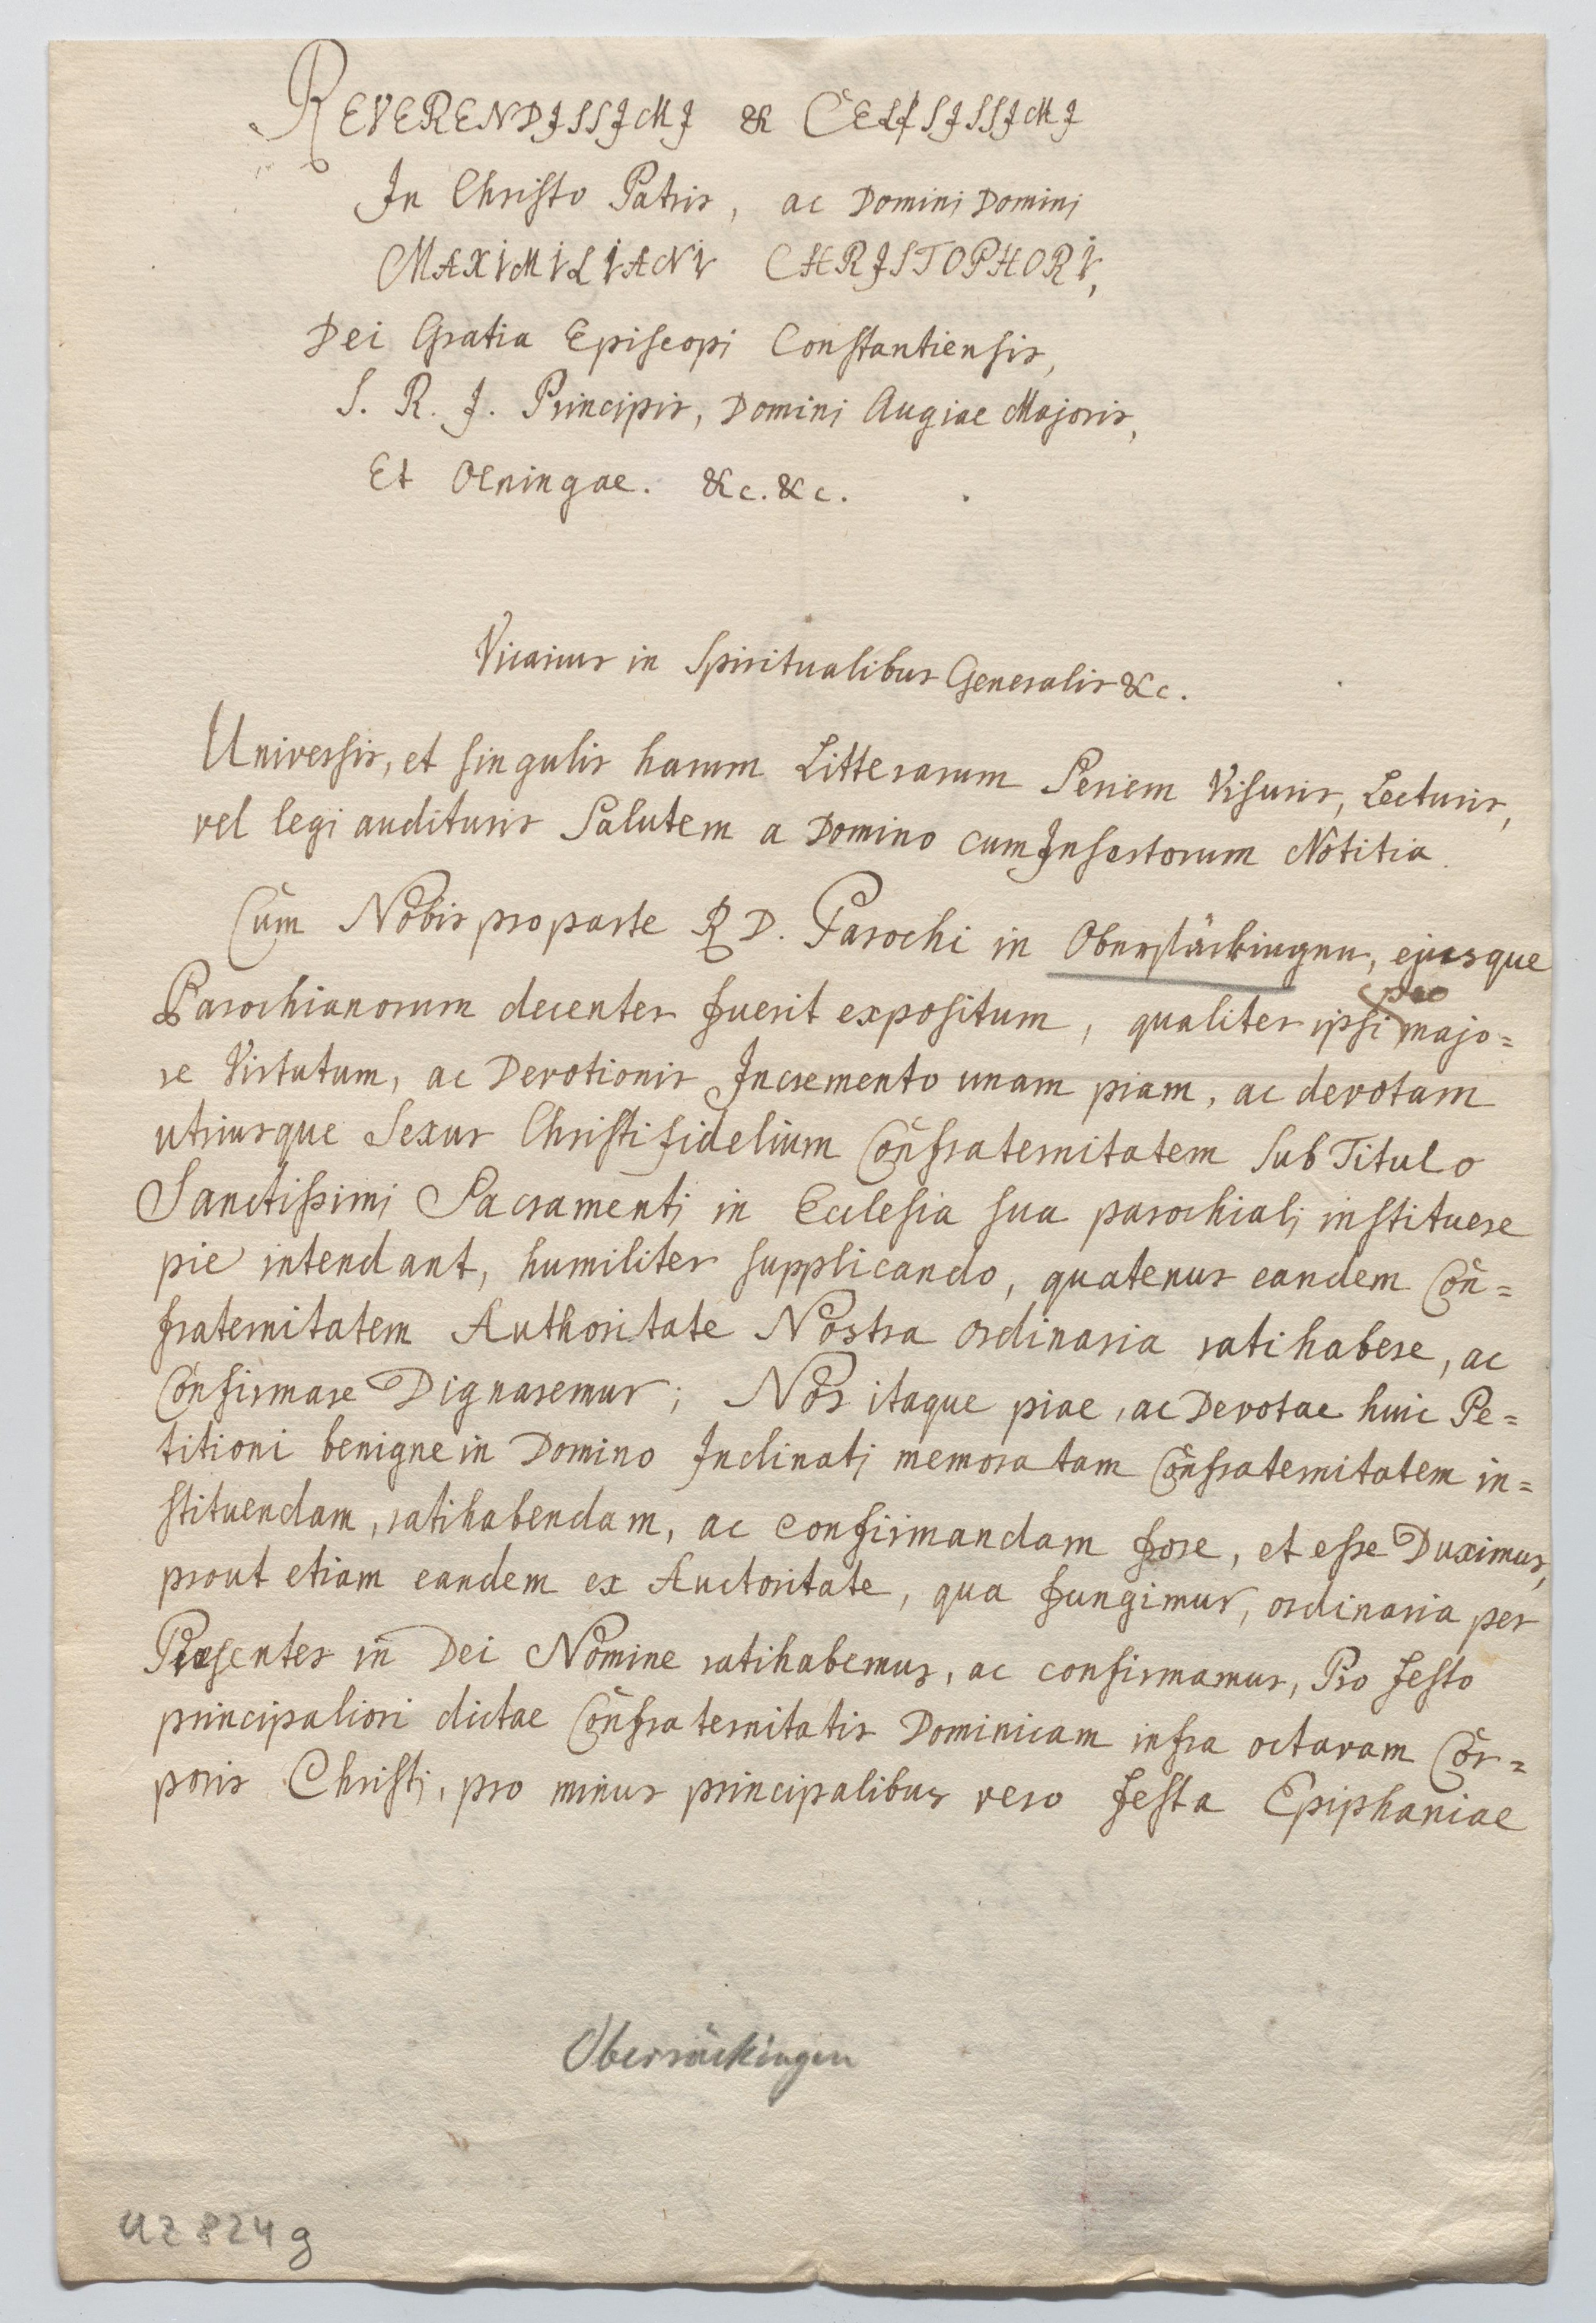 REVERENDISSIMI & CELSISSIMI
In Christo Patris, ac Domini Domini
MAXIMILIANI CHRISTOPHORI,
Dei Gratia Episcopi Constantiensis,
S. R. J. Principis, Domini Augiae Majoris,
Et Oeningae. &c. &c.
Vicarius in Spiritualibus Generalis &c.
Universis, et singulis harum Litterarum Seriem Visuris, Lecturis,
vel legi audituris Salutem a Domino cum Insertorum Notitia.
Cum Nobis pro parte R D. Parochi in Obersäckingen, ejusque
Parochianorum decenter fuerit expositum, qualiter ipsi pro majo=
re Virtutum, ac Devotionis Incremento unam piam, ac devotam
utriusque Sexus Christi fidelium Confraternitatem Sub Titulo
Sanctissimi Sacramenti in Ecclesia sua parochiali instituere
pie intendant, humiliter supplicando, quatenus eandem Con=
fraternitatem Authoritate Nostra ordinaria ratihabere, ac
Confirmare Dignaremur; Nos itaque piae, ac Devotae huic Pe=
titioni benigne in Domino Inclinati memoratam Confraternitatem in=
stituendam, ratihabendam, ac confirmandam fore, et esse Duximus,
prout etiam eandem ex Auctoritate, qua fungimur, ordinaria per
Praesentes in Dei Nomine ratihabemus, ac confirmamus, Pro festo
principaliori dictae Confraternitatis Dominicam infra octavam Cor=
poris Christi, pro minus principalibus vero festa Epiphaniae
Obersäckingen
UZ 824 g